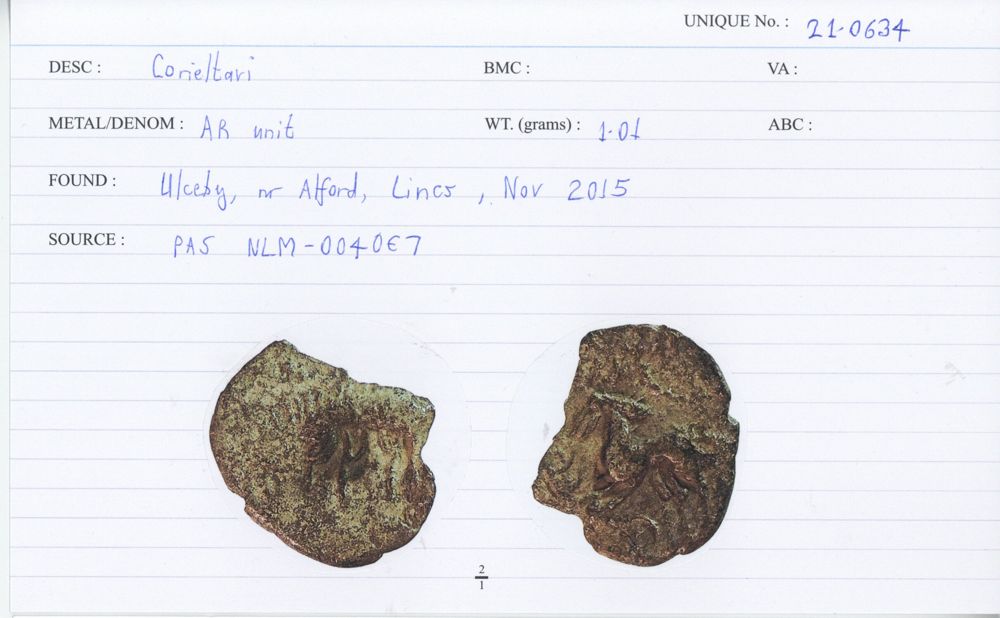 UNIQUE No. : 21-0634
DESC : Corieltavi BMC : VA :
METAL/DENOM : AR unit WT. (grams) : 1.01 ABC :
FOUND : Ulceby, nr Alford, Lincs, Nov 2015
SOURCE : PAS NLM-0040E7
2
1